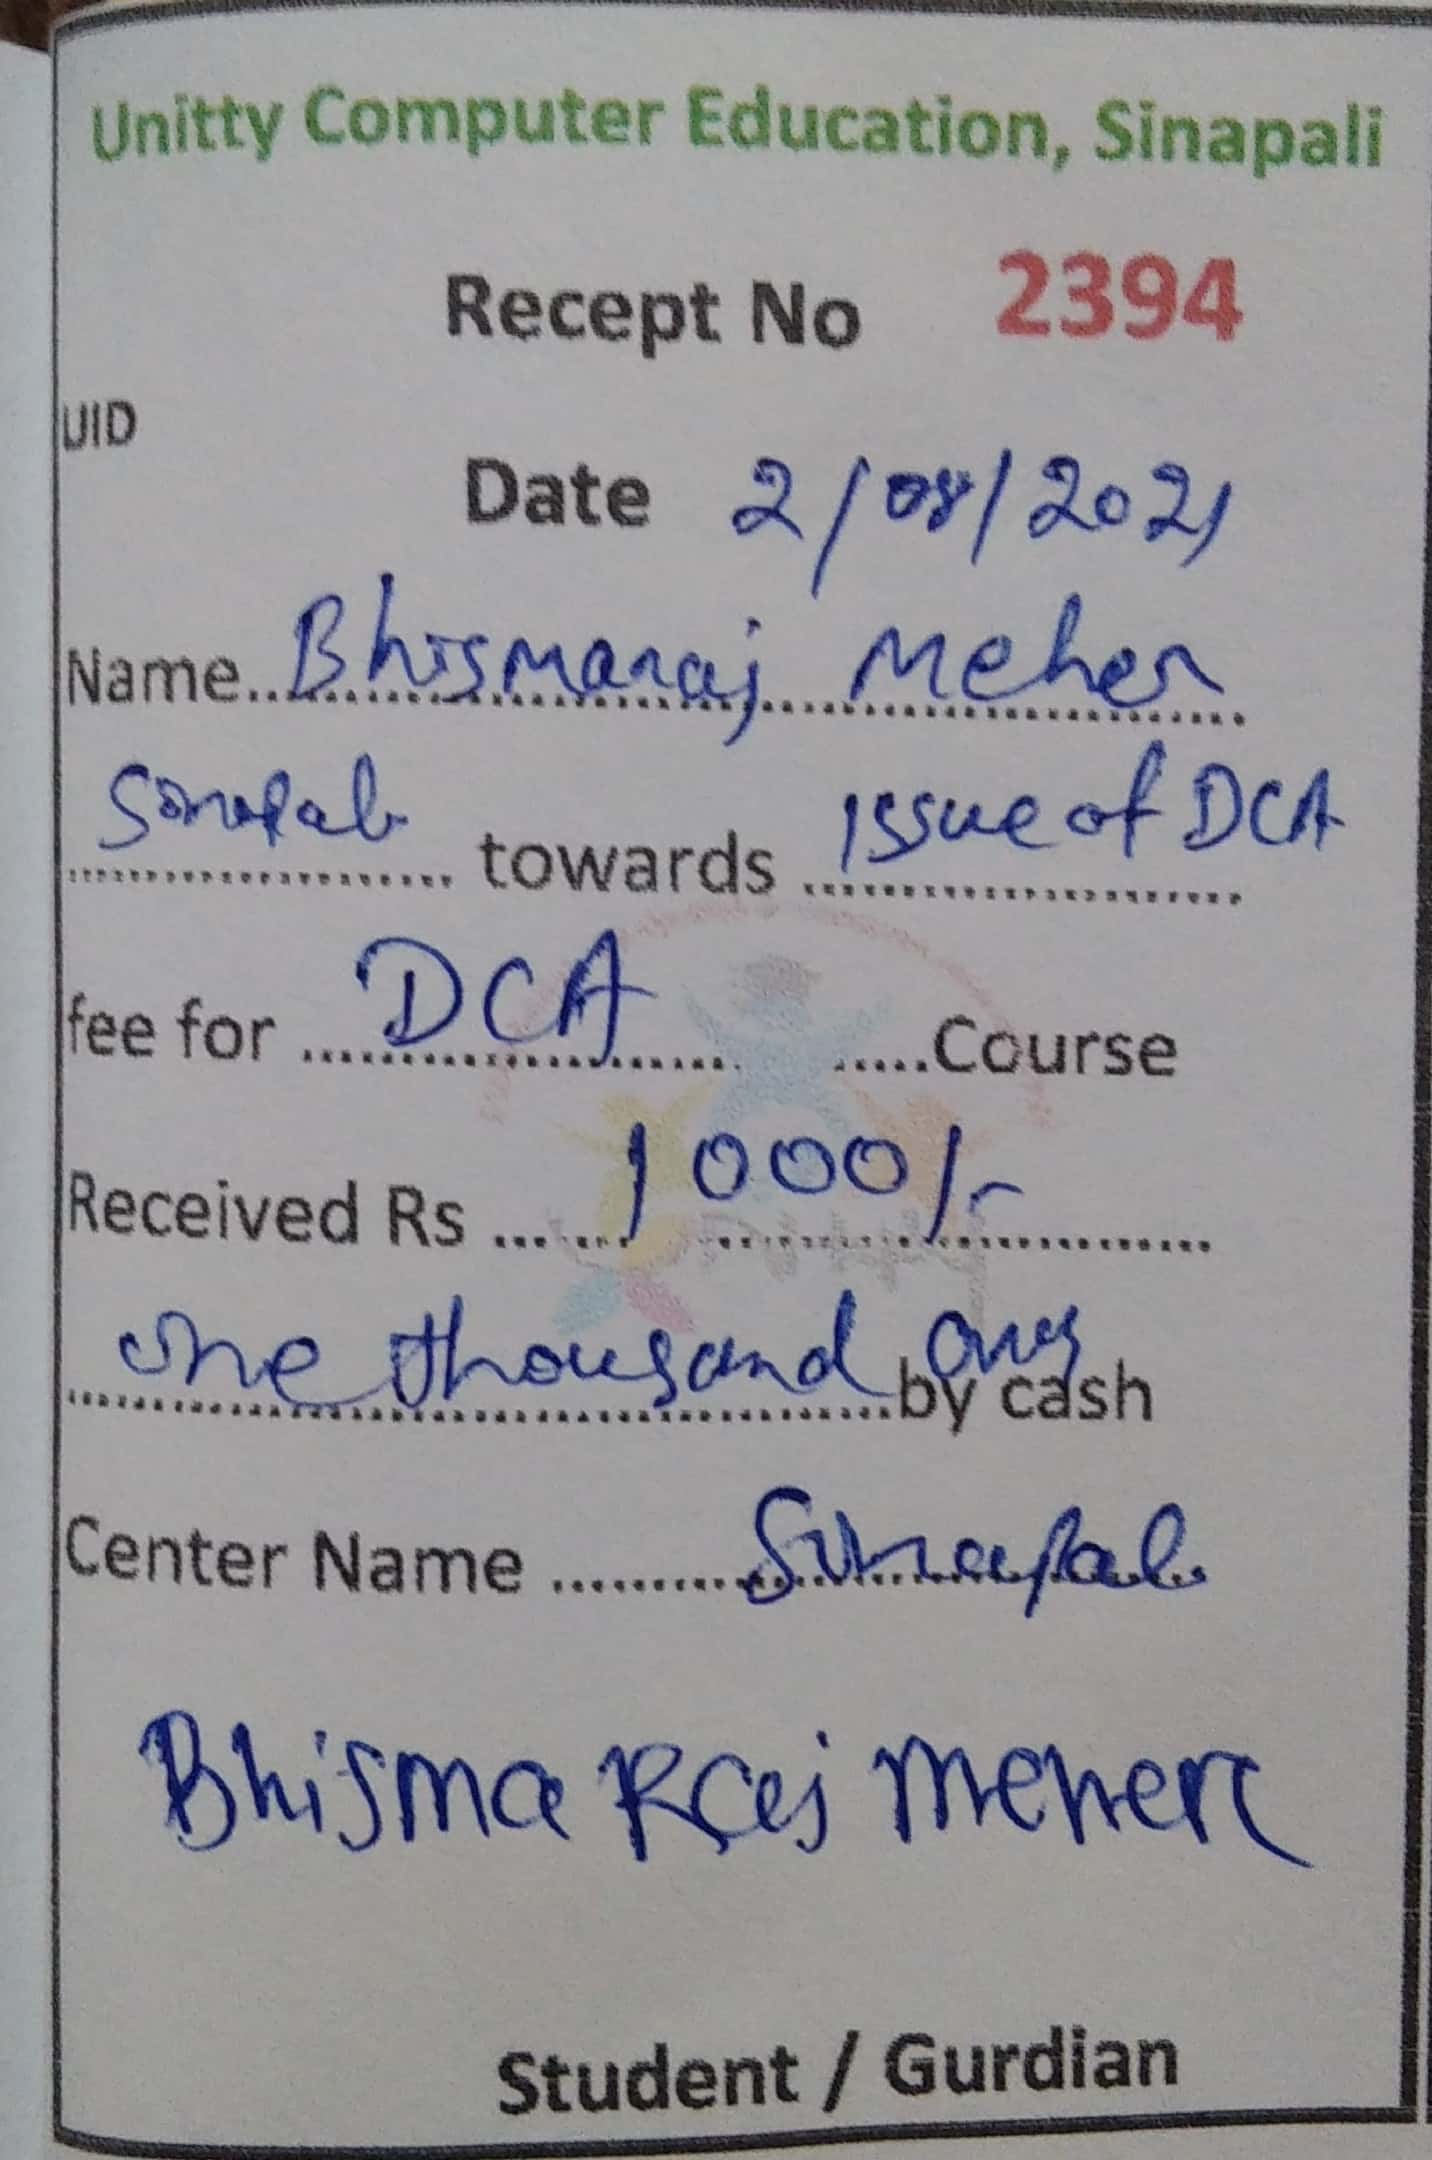 Unitty Computer Education, Sinapali
Recept No 2394
UID
Date 2/08/2021
Name Bhismaraj Meher
Sinapali towards Issue of DCA
fee for DCA Course
Received Rs 1000/-
One thousand only by cash
Center Name Sinapali
Bhisma Raj Meher
Student / Gurdian